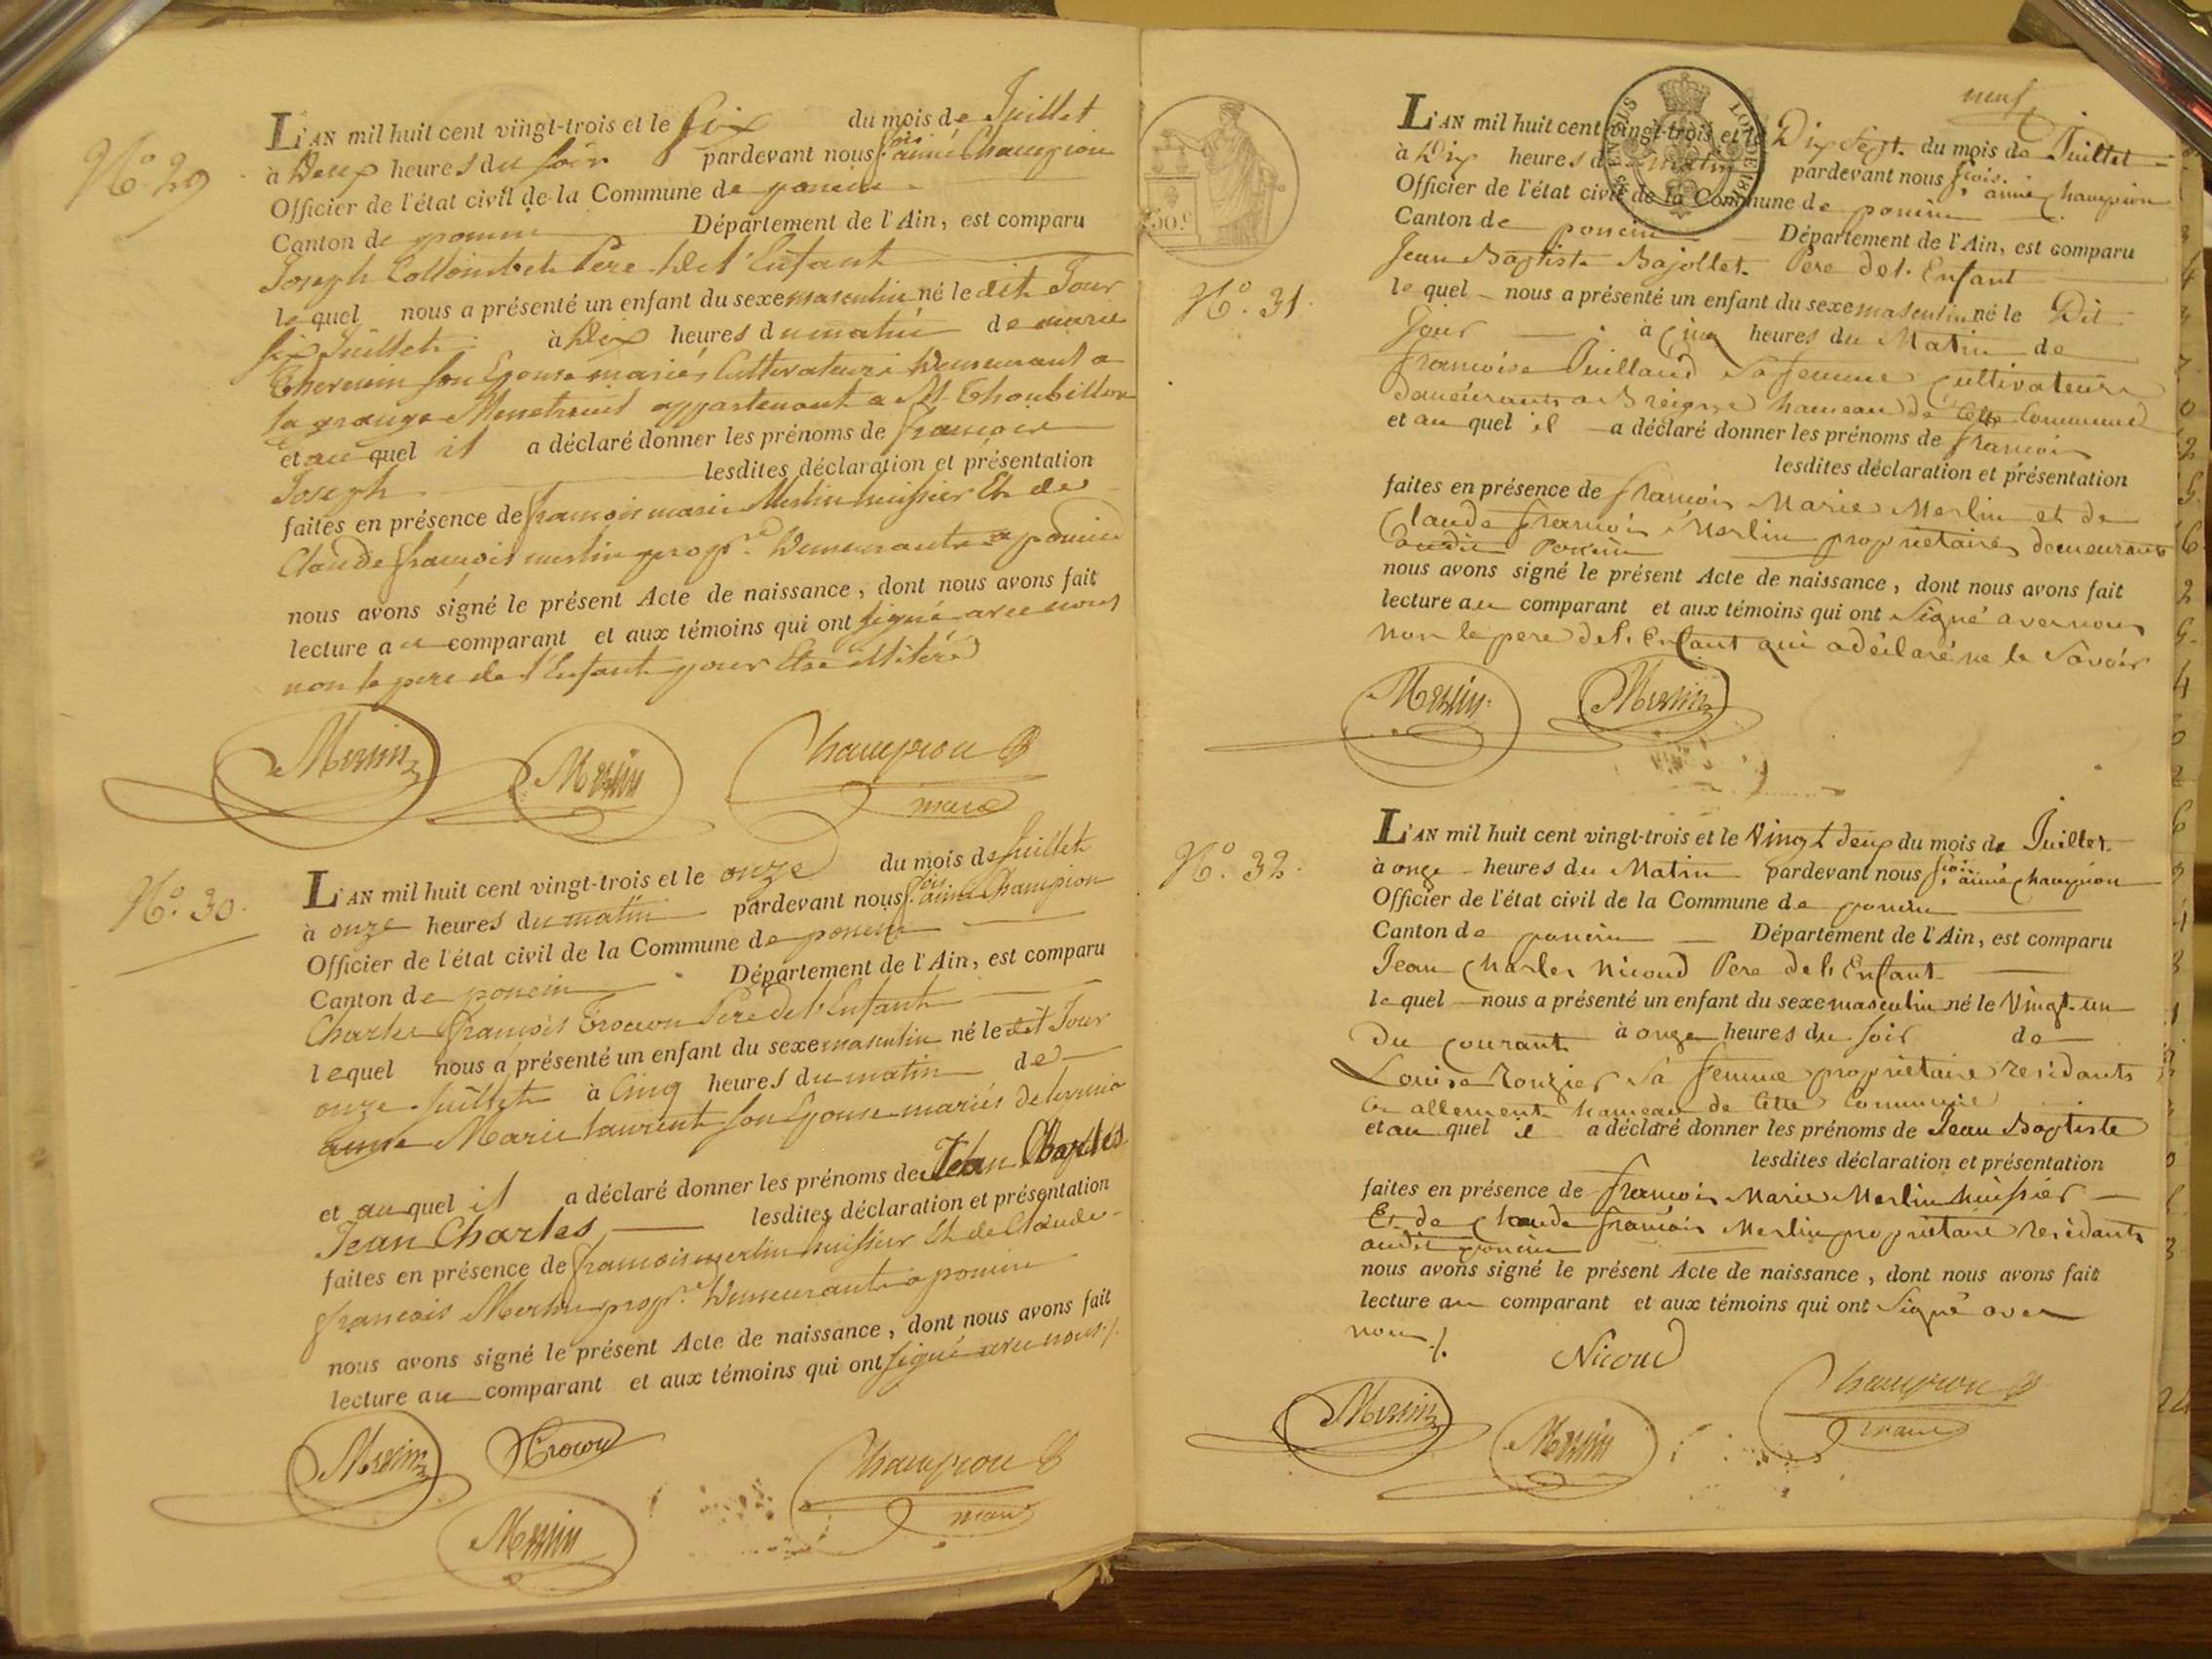 N.o 29
L'AN mil huit cent vingt-trois et le six du mois de Juillet
à Deux heures du soir pardevant nous f.ois aimé Champion
Officier de l'état civil de la Commune de poncin
Canton de poncin Département de l'Ain, est comparu
Joseph Collombet Pere de l'Enfant
lequel nous a présenté un enfant du sexe masculin né le dit Jour
six Juillet à Dix heures du matin de marie
Thevenin son Epouse mariés Cultivateurs Demeurant a
la grange Menetruel appartenant a M. Thoubillon
et au quel il a déclaré donner les prénoms de françois
Joseph lesdites déclaration et présentation
faites en présence de françois marie Merlin huissier Et de
Claude françois merlin propr.e Demeurants a poncin
nous avons signé le présent Acte de naissance, dont nous avons fait
lecture au comparant et aux témoins qui ont signé avec nous
non le pere de l'Enfant pour Etre illitéré
Merlin Merlin Champion
maire
N.o 30.
L'AN mil huit cent vingt-trois et le onze du mois de Juillet
à onze heures du matin pardevant nous f.ois aimé Champion
Officier de l'état civil de la Commune de poncin
Canton de poncin Département de l'Ain, est comparu
Charles françois Trocon Pere de l'Enfant
lequel nous a présenté un enfant du sexe masculin né le dit Jour
onze Juillet à Cinq heures du matin de
anne Marie laurent son Epouse mariés de
et au quel il a déclaré donner les prénoms de Jean Charles
Jean Charles lesdites déclaration et présentation
faites en présence de françois merlin huissier Et de Claude
françois Merlin propr.e Demeurants a poncin
nous avons signé le présent Acte de naissance, dont nous avons fait
lecture au comparant et aux témoins qui ont signé avec nous ./.
Merlin Trocon
Champion
Merlin maire
50.c
N.o 31.
neuf
L'AN mil huit cent vingt-trois et le Dix Sept du mois de Juillet
à Dix heures du matin pardevant nous f.cois aimé Champion
Officier de l'état civil de la Commune de poncin
Canton de poncin Département de l'Ain, est comparu
Jean Baptiste Bajollet Pere del. Enfant
lequel nous a présenté un enfant du sexe masculin né le Dit
Jour à Cinq heures du Matin de
francoise Puilland Sa femme Cultivateurs
demeurants a Breigne hameau de Cette Commune
et au quel il a déclaré donner les prénoms de francois
lesdites déclaration et présentation
faites en présence de francois Marie Merlin et de
Claude francois Merlin proprietaires demeurants
audit Poncin
nous avons signé le présent Acte de naissance, dont nous avons fait
lecture au comparant et aux témoins qui ont Signé avec nous
non le pere del. Enfant qui a déclaré ne le Savoir
Merlin Merlin
N.o 32.
L'AN mil huit cent vingt-trois et le Vingt deux du mois de Juillet
à onze heures du Matin pardevant nous f.cois aimé Champion
Officier de l'état civil de la Commune de poncin
Canton de poncin Département de l'Ain, est comparu
Jean Charles Nicoud Pere del. Enfant
lequel nous a présenté un enfant du sexe masculin né le Vingt-un
Du Courant à onze heures du soir de
Louise Rouzier Sa femme proprietaire residants
en allement hameau de Cette Commune
et au quel il a déclaré donner les prénoms de Jean Baptiste
lesdites déclaration et présentation
faites en présence de francois Marie Merlin huissier
Et de Claude francois Merlin proprietaire residants
audit poncin
nous avons signé le présent Acte de naissance, dont nous avons fait
lecture au comparant et aux témoins qui ont Signé avec
nous ./.
Nicoud
Merlin Merlin Champion
maire